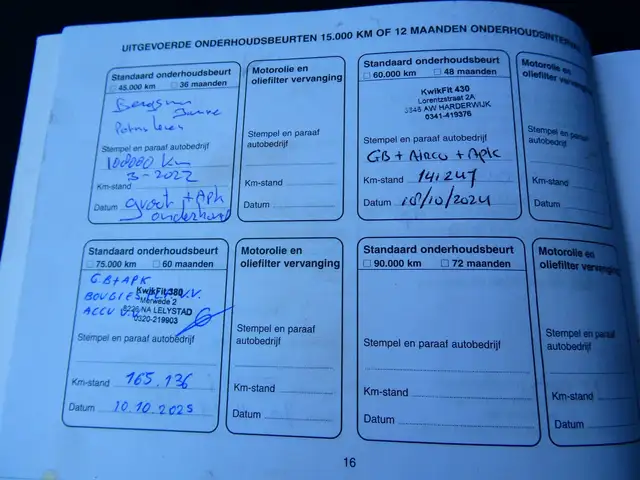 UITGEVOERDE ONDERHOUDSBEURTEN 15.000 KM OF 12 MAANDEN ONDERHOUDSINTER
Standaard onderhoudsbeurt
45.000 km 36 maanden
Stempel en paraaf autobedrijf
100000 km
3-2022
Km-stand
Datum groot + Apk
onderhoud
Motorolie en
oliefilter vervanging
Stempel en paraaf
autobedrijf
Km-stand
Datum
Standaard onderhoudsbeurt
60.000 km 48 maanden
KwikFit 430
Lorentzstraat 2A
AW HARDERWIJK
0341-419376
Stempel en paraaf autobedrijf
GB + Airco + Apk
Km-stand 141247
Datum 10/2024
Motorolie en
oliefilter vervanging
Stempel en paraaf
autobedrijf
Km-stand
Datum
Standaard onderhoudsbeurt
75.000 km 60 maanden
GB + APK
KwikFit 380
BOUGIES V.V.
Merwede 2
ACCU
NA LELYSTAD
0320-219903
Stempel en paraaf autobedrijf
Km-stand 165.136
Datum 10.10.2025
Motorolie en
oliefilter vervanging
Stempel en paraaf
autobedrijf
Km-stand
Datum
Standaard onderhoudsbeurt
90.000 km 72 maanden
Stempel en paraaf autobedrijf
Km-stand
Datum
Motorolie en
oliefilter vervanging
Stempel en paraaf
autobedrijf
Km-stand
Datum
16